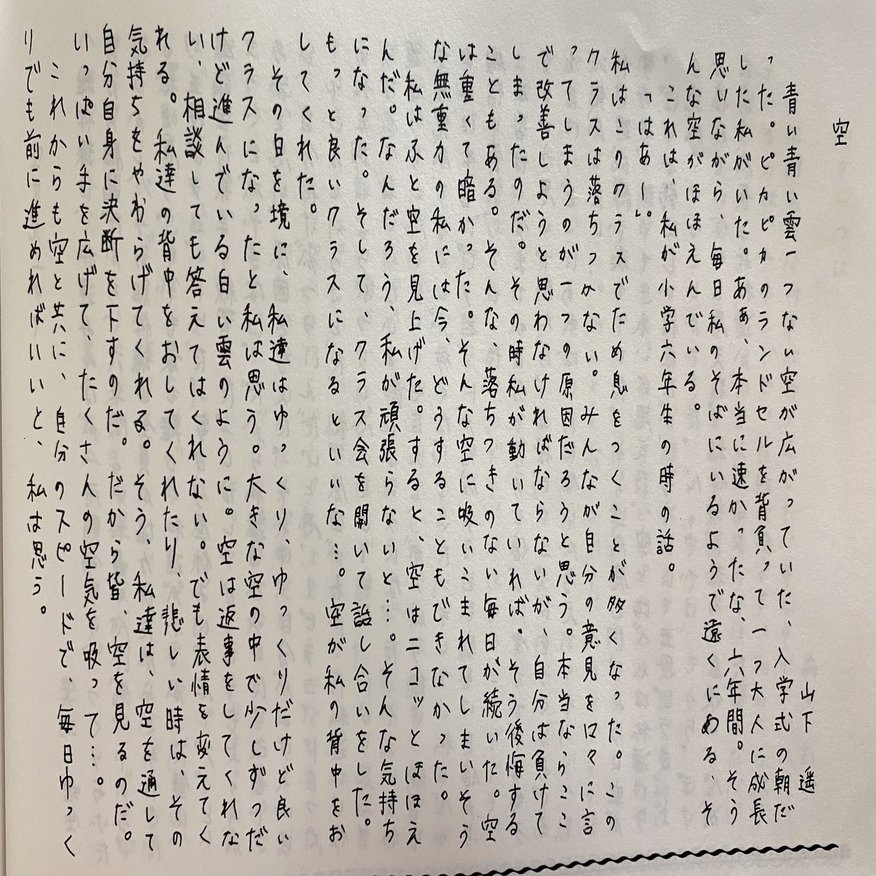 空
山下　遥
青い青い雲一つない空が広がっていた、入学式の朝だ
った。ピカピカのランドセルを背負って一つ大人に成長
した私がいた。あぁ、本当に速かったな、六年間。そう
思いながら、毎日私のそばにいるようで遠くにある、そ
んな空がほほえんでいる。
これは、私が小学六年生の時の話。
「はあー」。
私はこのクラスでため息をつくことが多くなった。この
クラスは落ちつかない。みんなが自分の意見を口々に言
ってしまうのが一つの原因だろうと思う。本当ならここ
で改善しようと思わなければならないが、自分は負けて
しまったのだ。その時私が動いていれば。そう後悔する
こともある。そんな、落ちつきのない毎日が続いた。空
は重くて暗かった。そんな空に吸いこまれてしまいそう
な無重力の私には今、どうすることもできなかった。
私はふと空を見上げた。すると、空はニコッとほほえ
んだ。なんだろう、私が頑張らないと…。そんな気持ち
になった。そして、クラス会を開いて話し合いをした。
もっと良いクラスになるといいな…。空が私の背中をお
してくれた。
その日を境に、私達はゆっくり、ゆっくりだけど良い
クラスになったと私は思う。大きな空の中で少しずつだ
けど進んでいる白い雲のように。空は返事をしてくれな
い、相談しても答えてはくれない。でも表情を変えてく
れる。私達の背中をおしてくれたり、悲しい時は、その
気持ちをやわらげてくれる。そう、私達は、空を通して
自分自身に決断を下すのだ。だから皆、空を見るのだ。
いっぱい手を広げて、たくさんの空気を吸って…。
これからも空と共に、自分のスピードで、毎日ゆっく
りでも前に進めればいいと、私は思う。